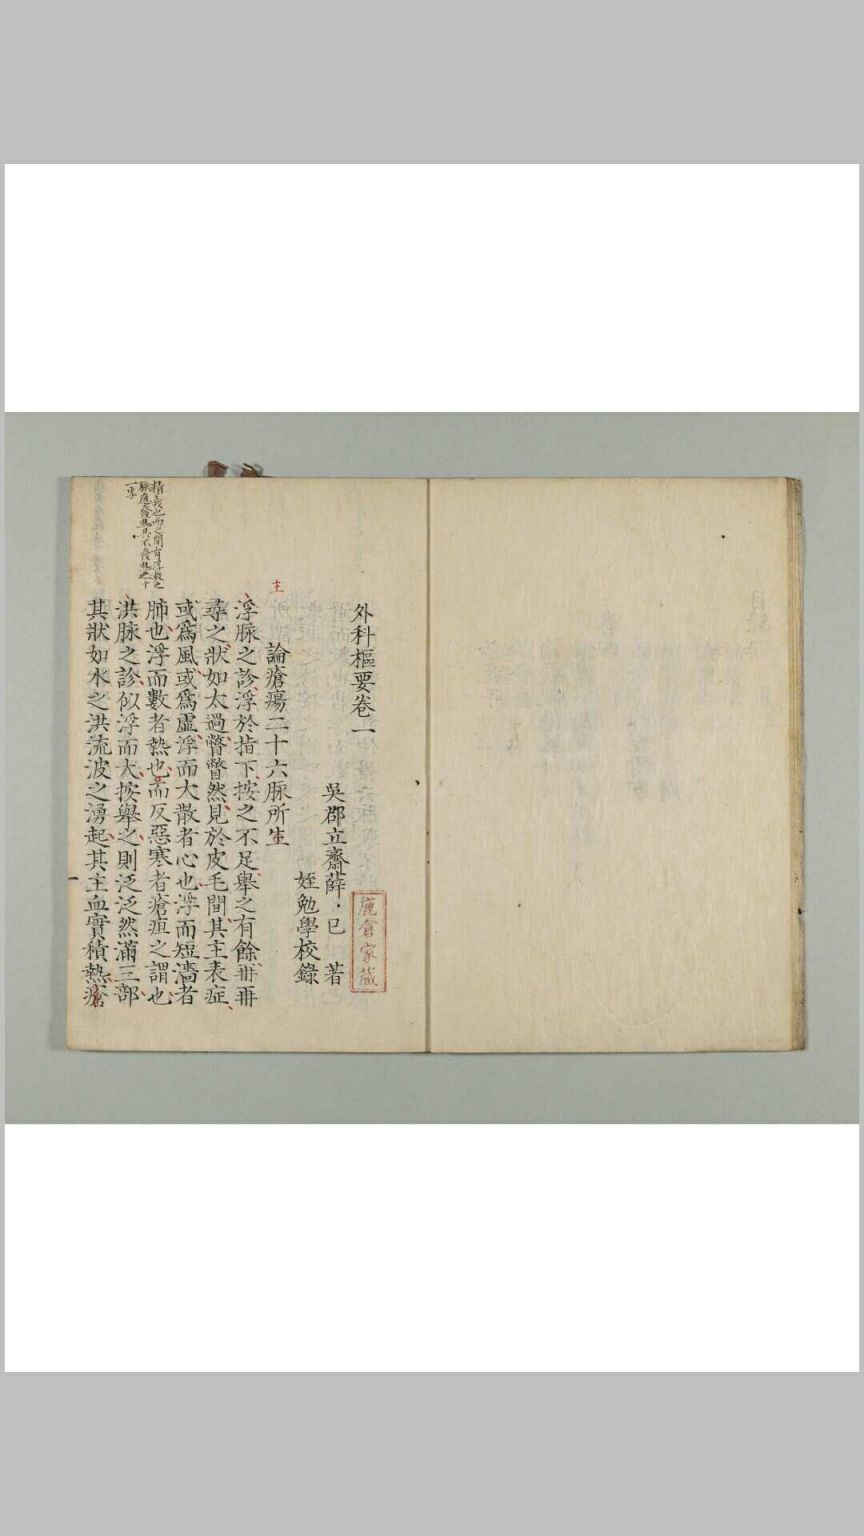 外科樞要卷一
吳郡立齋薛・已 著
姪勉學校錄
論瘡瘍二十六脉所生
主
浮脉之診浮於指下按之不足舉之有餘再再
尋之狀如太過瞥瞥然見於皮毛間其主表症
或爲風或爲虛浮而大散者心也浮而短濇者
肺也浮而數者熱也而反惡寒者瘡疽之謂也
洪脉之診似浮而大按舉之則泛泛然滿三部
其狀如水之洪流波之湧起其主血實積熱瘡
精義也而之間有浮數之
脉應發熱其不發熱之十
一字
鹿倉家藏